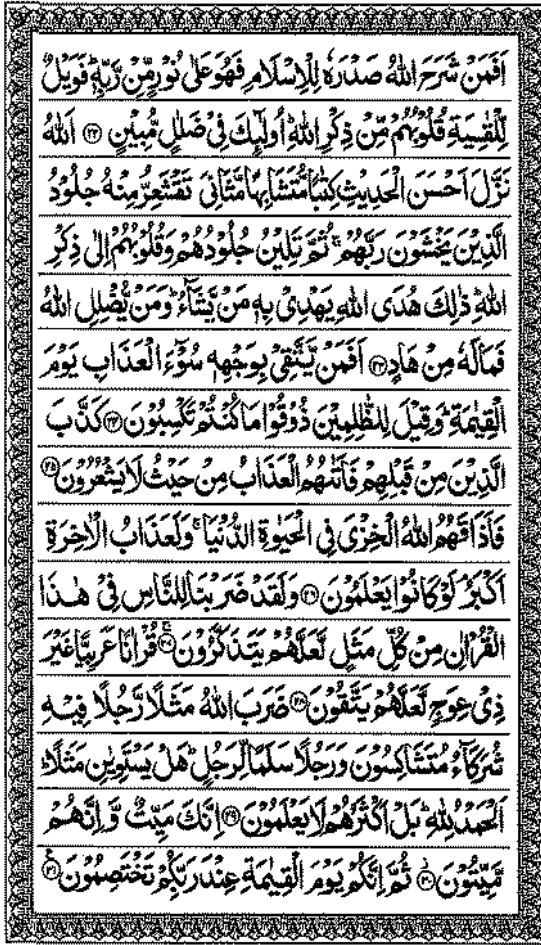 اَفَمَنْ شَرَحَ اللّٰهُ صَدْرَهٗ لِلْاِسْلَامِ فَهُوَ عَلٰى نُوْرٍ مِّنْ رَّبِّهٖؕ فَوَيْلٌ
لِّلْقٰسِيَةِ قُلُوْبُهُمْ مِّنْ ذِكْرِ اللّٰهِؕ اُولٰٓئِكَ فِىْ ضَلٰلٍ مُّبِيْنٍ ۲۲ اَللّٰهُ
نَزَّلَ اَحْسَنَ الْحَدِيْثِ كِتٰبًا مُّتَشَابِهًا مَّثَانِىَ ۖ تَقْشَعِرُّ مِنْهُ جُلُوْدُ
الَّذِيْنَ يَخْشَوْنَ رَبَّهُمْۚ ثُمَّ تَلِيْنُ جُلُوْدُهُمْ وَقُلُوْبُهُمْ اِلٰى ذِكْرِ
اللّٰهِؕ ذٰلِكَ هُدَى اللّٰهِ يَهْدِىْ بِهٖ مَنْ يَّشَآءُؕ وَمَنْ يُّضْلِلِ اللّٰهُ
فَمَا لَهٗ مِنْ هَادٍ ۲۳ اَفَمَنْ يَّتَّقِىْ بِوَجْهِهٖ سُوْٓءَ الْعَذَابِ يَوْمَ
الْقِيٰمَةِؕ وَقِيْلَ لِلظّٰلِمِيْنَ ذُوْقُوْا مَا كُنْتُمْ تَكْسِبُوْنَ ۲۴ كَذَّبَ
الَّذِيْنَ مِنْ قَبْلِهِمْ فَاَتٰٮهُمُ الْعَذَابُ مِنْ حَيْثُ لَا يَشْعُرُوْنَ ۲۵
فَاَذَاقَهُمُ اللّٰهُ الْخِزْىَ فِى الْحَيٰوةِ الدُّنْيَاۚ وَلَعَذَابُ الْاٰخِرَةِ
اَكْبَرُۘ لَوْ كَانُوْا يَعْلَمُوْنَ ۲۶ وَلَقَدْ ضَرَبْنَا لِلنَّاسِ فِىْ هٰذَا
الْقُرْاٰنِ مِنْ كُلِّ مَثَلٍ لَّعَلَّهُمْ يَتَذَكَّرُوْنَۚ ۲۷ قُرْاٰنًا عَرَبِيًّا غَيْرَ
ذِىْ عِوَجٍ لَّعَلَّهُمْ يَتَّقُوْنَ ۲۸ ضَرَبَ اللّٰهُ مَثَلًا رَّجُلًا فِيْهِ
شُرَكَآءُ مُتَشٰكِسُوْنَ وَرَجُلًا سَلَمًا لِّرَجُلٍؕ هَلْ يَسْتَوِيٰنِ مَثَلًاؕ
اَلْحَمْدُ لِلّٰهِؕ بَلْ اَكْثَرُهُمْ لَا يَعْلَمُوْنَ ۲۹ اِنَّكَ مَيِّتٌ وَّاِنَّهُمْ
مَّيِّتُوْنَ ۳۰ ثُمَّ اِنَّكُمْ يَوْمَ الْقِيٰمَةِ عِنْدَ رَبِّكُمْ تَخْتَصِمُوْنَ ۳۱